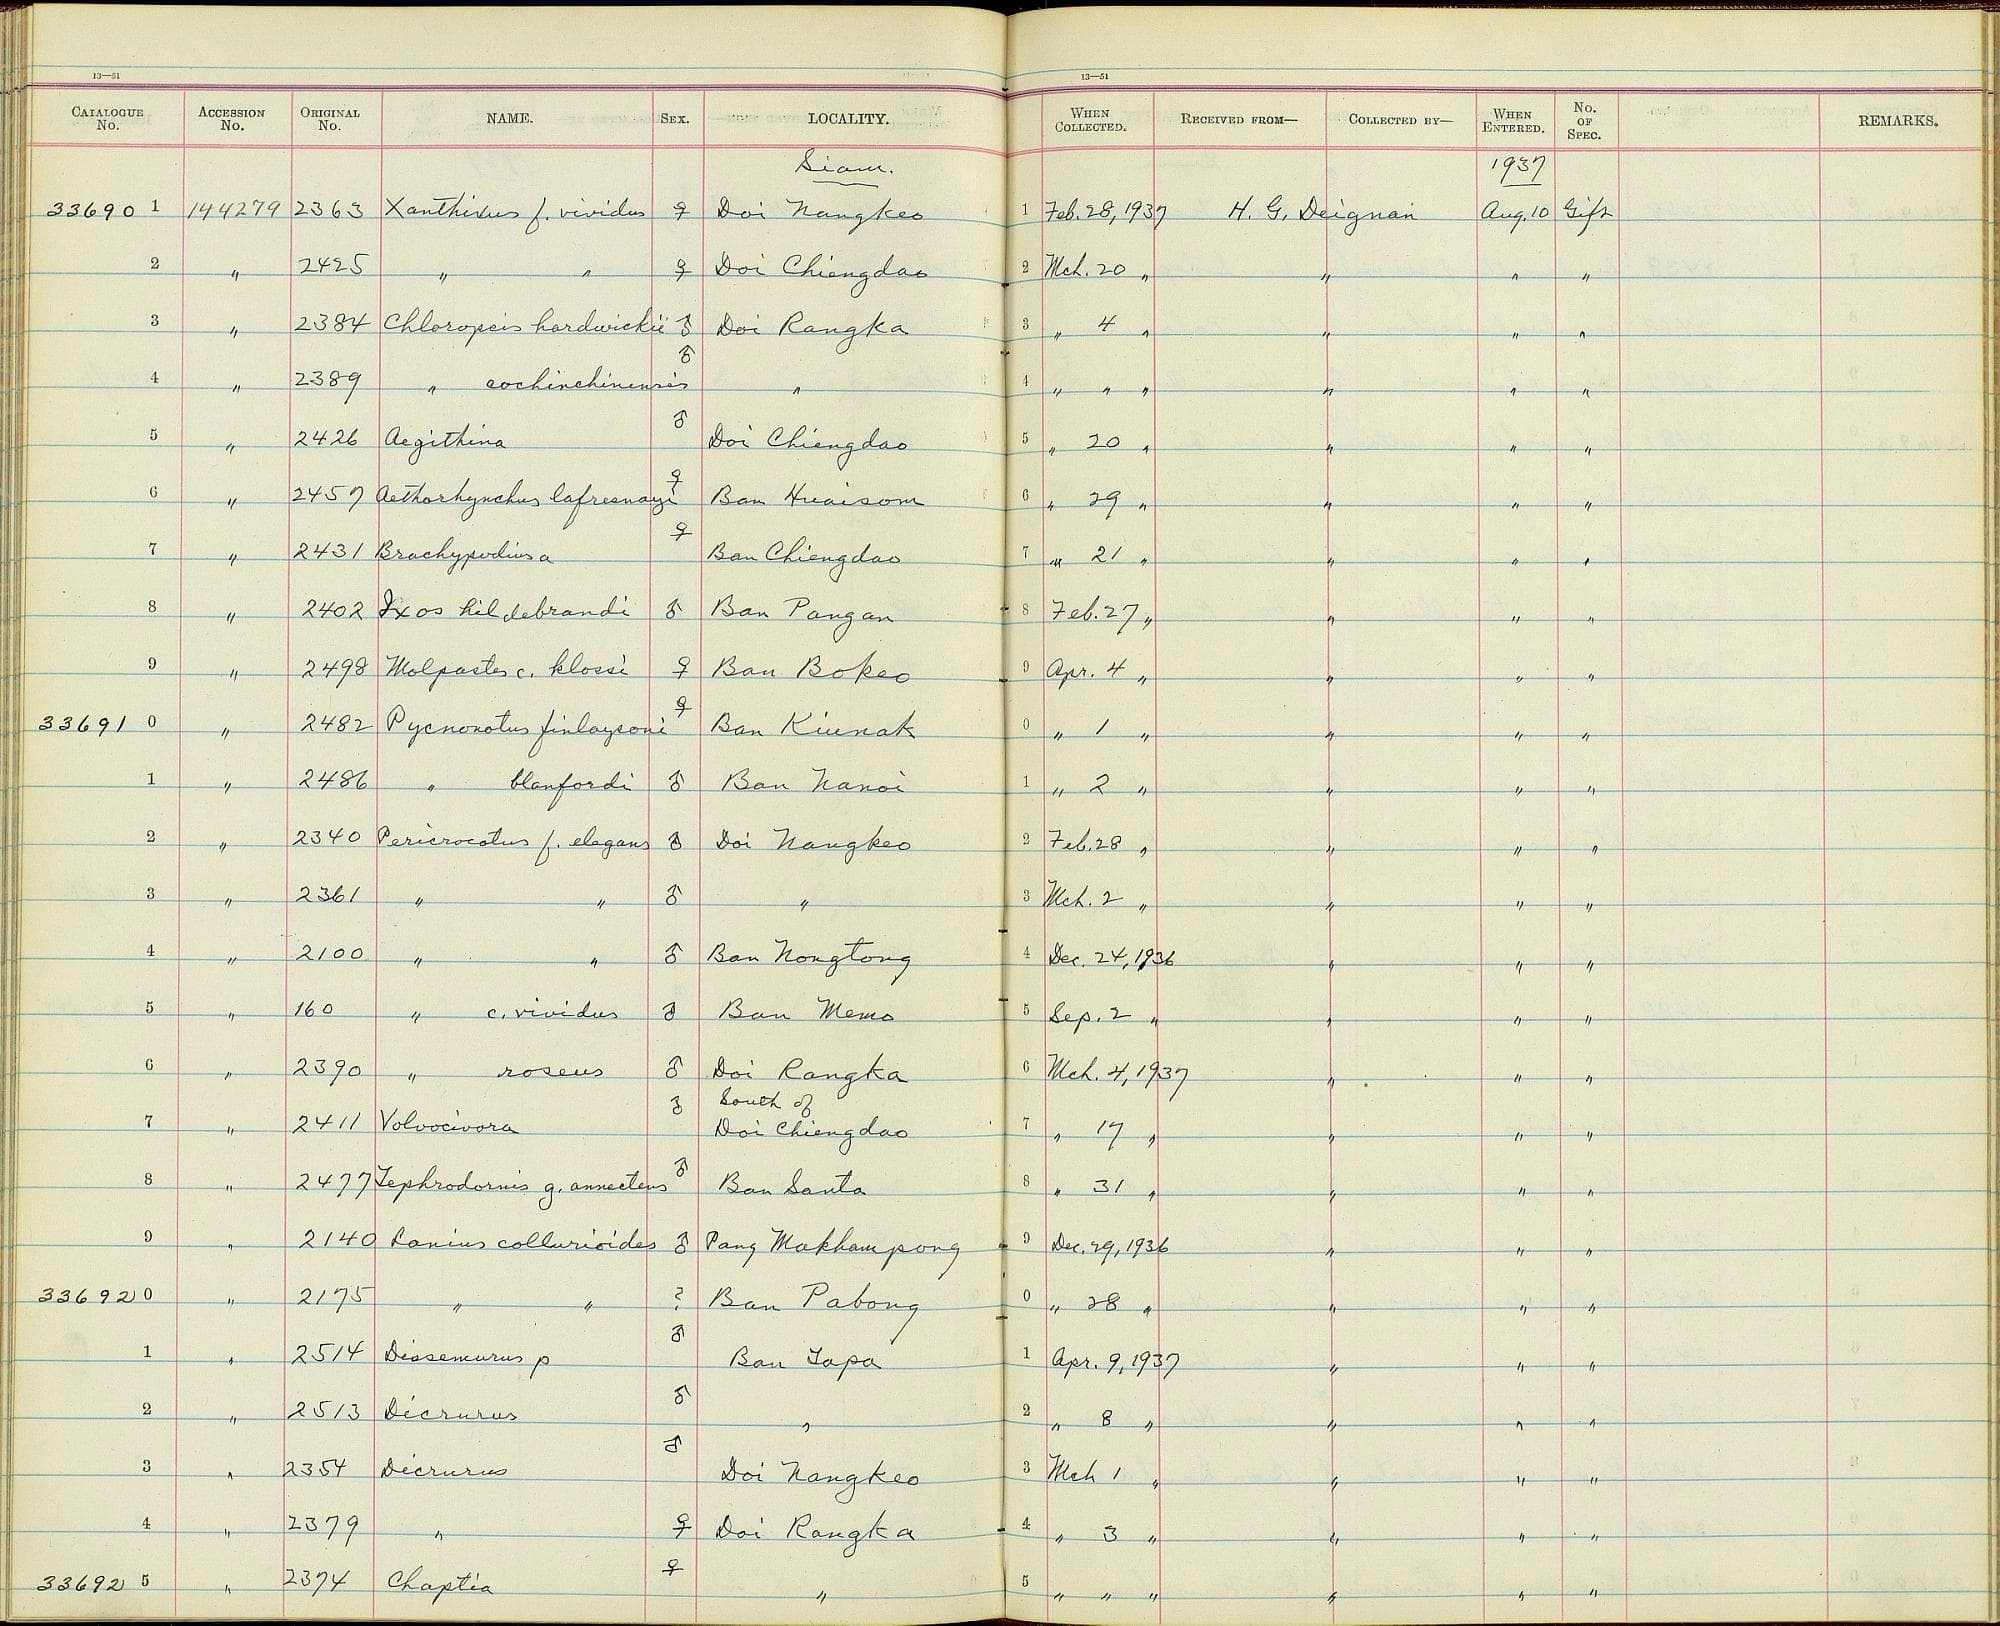 13—51
13—51
CATALOGUE No. ACCESSION No. ORIGINAL No. NAME. SEX. LOCALITY. WHEN COLLECTED. RECEIVED FROM— COLLECTED BY— WHEN ENTERED. No. OF SPEC. REMARKS.
Siam. 1937
33690 1 144279 2363 Xanthixus f. vividus ♀ Doi Nangkeo 1 Feb. 28, 1937 H. G. Deignan Aug. 10 Gift
2 " 2425 " " ♀ Doi Chiengdao 2 Mch. 20 " " " "
3 " 2384 Chloropsis hardwickii ♂ Doi Rangka 3 " 4 " " " "
4 " 2389 " cochinchinensis ♂ " 4 " " " " " "
5 " 2426 Aegithina ♂ Doi Chiengdao 5 " 20 " " " "
6 " 2457 Aethorhynchus lafresnayi ♀ Ban Huaisom 6 " 29 " " " "
7 " 2431 Brachypodius a ♀ Ban Chiengdao 7 " 21 " " " "
8 " 2402 Ixos hildebrandi ♂ Ban Pangan 8 Feb. 27 " " " "
9 " 2498 Molpastes c. klossi ♀ Ban Bokeo 9 Apr. 4 " " " "
33691 0 " 2482 Pycnonotus finlaysoni ♀ Ban Kiunak 0 " 1 " " " "
1 " 2486 " blanfordi ♂ Ban Nanoi 1 " 2 " " " "
2 " 2340 Pericrocotus f. elegans ♂ Doi Nangkeo 2 Feb. 28 " " " "
3 " 2361 " " ♂ " 3 Mch. 2 " " " "
4 " 2100 " " ♂ Ban Nongtong 4 Dec. 24, 1936 " " "
5 " 160 " c. vividus ♂ Ban Memo 5 Sep. 2 " " " "
6 " 2390 " roseus ♂ Doi Rangka 6 Mch. 4, 1937 " " "
South of
7 " 2411 Volvocivora ♂ Doi Chiengdao 7 " 17 " " " "
8 " 2477 Tephrodornis g. annectens ♂ Ban Santa 8 " 31 " " " "
9 " 2140 Lanius collurioides ♂ Pang Makhampong 9 Dec. 29, 1936 " " "
33692 0 " 2175 " " ? Ban Pabong 0 " 28 " " " "
1 " 2514 Dissemurus p ♂ Ban Tapa 1 Apr. 9, 1937 " " "
2 " 2513 Dicrurus ♂ " 2 " 8 " " " "
3 " 2354 Dicrurus ♂ Doi Nangkeo 3 Mch 1 " " " "
4 " 2379 " ♀ Doi Rangka 4 " 3 " " " "
33692 5 " 2374 Chaptia ♀ " 5 " " " " " "